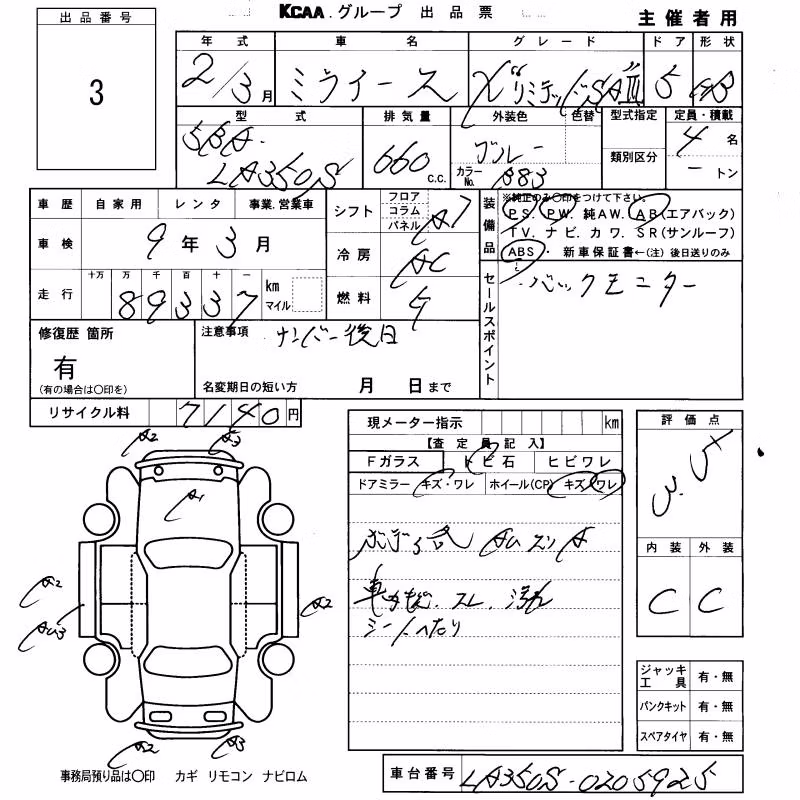 KCAA.グループ 出品票
主催者用
出品番号
3
年式 車名 グレード ドア 形状
2/3月 ミライース X"リミテッドSAⅢ 5 HB
型式 排気量 外装色 色替 型式指定 定員・積載
5BA- LA350S 660 C.C. ブルー カラーNo. B83 類別区分 4名 ートン
車歴 自家用 レンタ 事業.営業車
シフト フロア コラム パネル AT
装備品 ※純正のみ〇印をつけて下さい。
PS. PW. 純AW. AB(エアバック)
TV. ナビ. カワ. SR(サンルーフ)
ABS・ 新車保証書←(注) 後日送りのみ
車検 9年3月
冷房 AC
走行 十万 万 千 百 十 一
89337 km マイル
燃料 G
セールスポイント バックモニター
修復歴 箇所
有
(有の場合は〇印を)
注意事項 ナンバー後日
名変期日の短い方 月 日まで
リサイクル料 7140円
現メーター指示 km
【査定員記入】
Fガラス トビ石 ヒビワレ
ドアミラー キズ・ワレ ホイール(CP) キズ・ワレ
評価点
3.5
内装 外装
C C
A2 A3
A1
A2
AU3
A2
A2 A3
車
スレ.汚れ
シートへたり
ジャッキ工具 有・無
パンクキット 有・無
スペアタイヤ 有・無
事務局預り品は〇印 カギ リモコン ナビロム
車台番号 LA350S-0205925